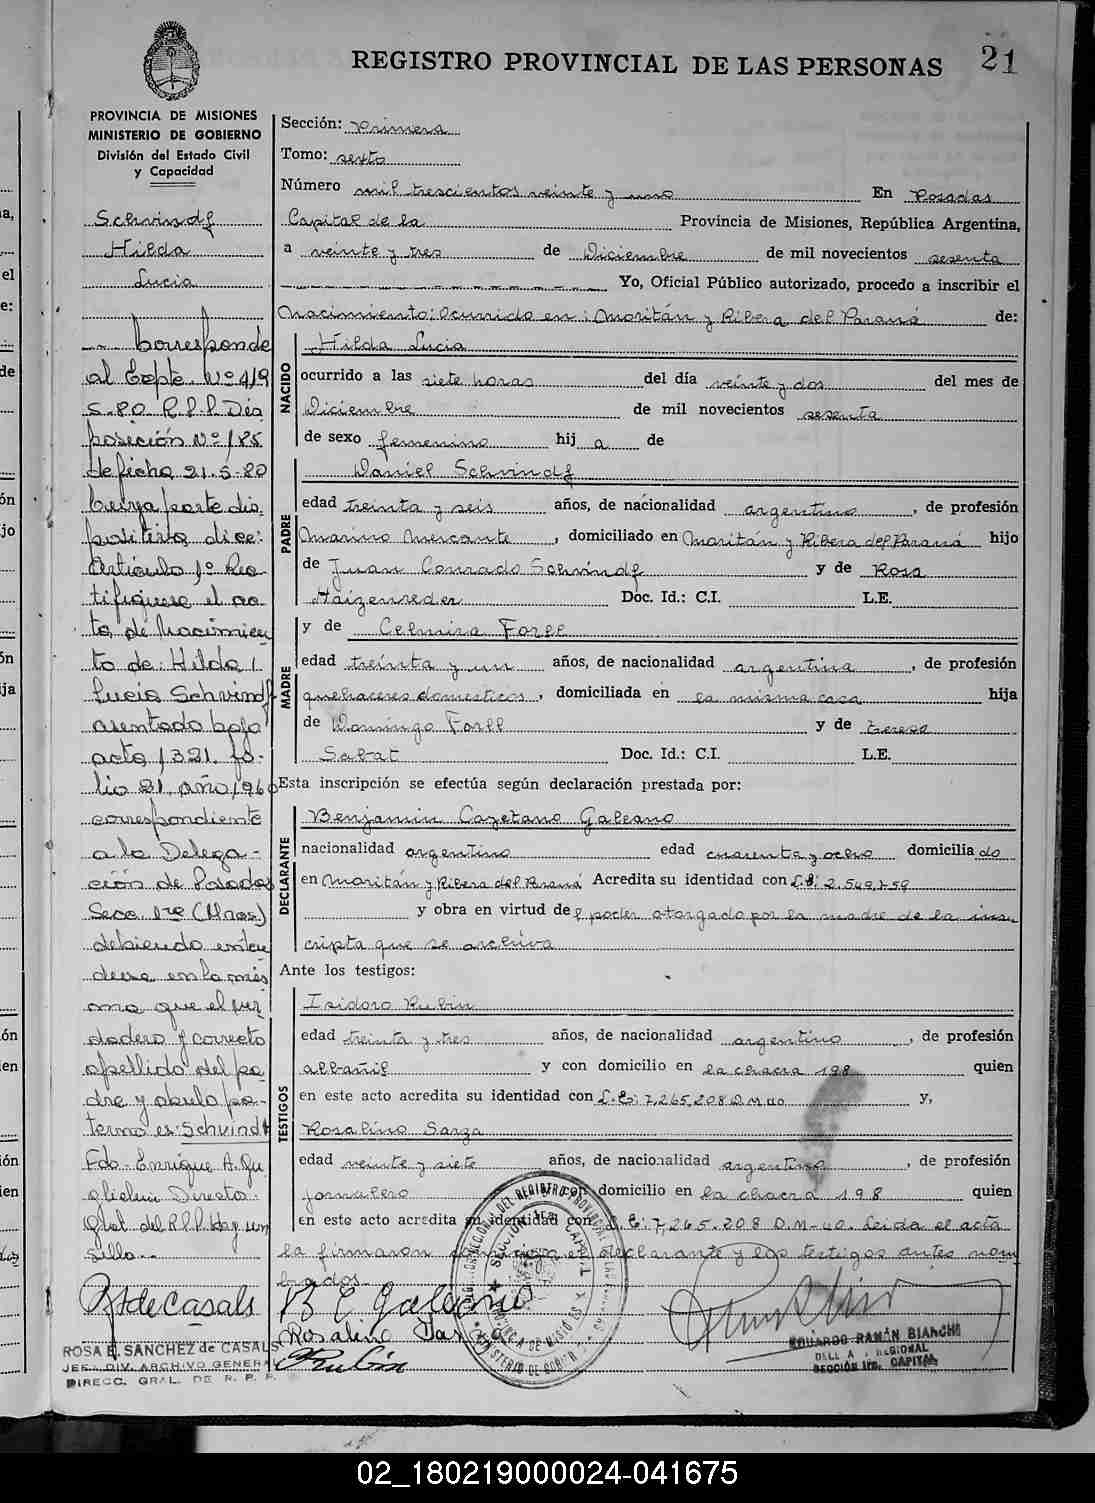 REGISTRO PROVINCIAL DE LAS PERSONAS 21
PROVINCIA DE MISIONES
MINISTERIO DE GOBIERNO
División del Estado Civil
y Capacidad
Schvindf
Hilda
Lucia
Corresponde
al Expte. Nº 419
S-80 R.P.P. Dis
posición Nº 185
de fecha 21.5-80
cuya parte dis
positiva dice:
Artículo 1º Rec
tifíquese el ac
ta de Nacimien
to de: Hilda
Lucia Schvindf
asentado bajo
acta 1321. fo-
lio 21, año 1960
correspondiente
a la Delega-
ción de Posadas
Secc. 1ra (Mnes.)
debiendo enten
derse en la mis
ma que el ver
dadero y correcto
apellido del pa
dre y abuelo pa-
terno es: Schvindt
Fdo. Enrique A. Gu
glielmi Director
Gral. del R.P.P. Hay un
sello..
RSdeCasals
ROSA E. SANCHEZ de CASALS
JEFA DIV. ARCHIVO GENERA
DIRECC. GRAL. DE R. P. P.
Sección: Primera
Tomo: sexto
Número mil trescientos veinte y uno En Posadas
Capital de la Provincia de Misiones, República Argentina,
a veinte y tres de Diciembre de mil novecientos sesenta
Yo, Oficial Público autorizado, procedo a inscribir el
Nacimiento: Ocurrido en: Moritán y Ribera del Paraná de:
NACIDO
Hilda Lucia
ocurrido a las siete horas del día veinte y dos del mes de
Diciembre de mil novecientos sesenta
de sexo femenino hij a de
PADRE
Daniel Schvindf
edad treinta y seis años, de nacionalidad argentino, de profesión
Marino Mercante, domiciliado en Moritán y Ribera del Paraná hijo
de Juan Conrado Schvindf y de Rosa
Haizenreder Doc. Id.: C.I. L.E.
MADRE
y de Celmira Forll
edad treinta y un años, de nacionalidad argentina, de profesión
quehaceres domesticos, domiciliada en la misma casa hija
de Domingo Forll y de Teresa
Sabat Doc. Id.: C.I. L.E.
Esta inscripción se efectúa según declaración prestada por:
DECLARANTE
Benjamin Cayetano Galeano
nacionalidad argentino edad cuarenta y ocho domicilia do
en Moritán y Ribera del Paraná Acredita su identidad con L.E: 2.549.759
y obra en virtud de l poder otorgado por la madre de la ins
cripta que se archiva
Ante los testigos:
TESTIGOS
Isidoro Rubin
edad treinta y tres años, de nacionalidad argentino, de profesión
albañil y con domicilio en la chacra 198 quien
en este acto acredita su identidad con L.E: 7,265,208 D.M. 40 y,
Rosalino Sarza
edad veinte y siete años, de nacionalidad argentino, de profesión
jornalero domicilio en la chacra 198 quien
en este acto acredita su identidad con L.E: 7,265.208 D.M-40. Leida el acta
la firmaron declarante y los testigos antes nom
brados.
B C Galeano
Rosalino Sarza
Rubin
EDUARDO RAMÓN BIANCHI
REGIONAL
SECCIÓN 1ra. CAPITAL
02_180219000024-041675